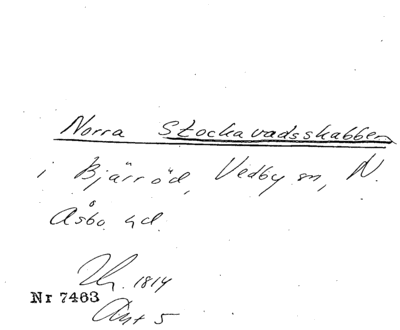 Norra Stockavadsskabben
i Bjärröd, Vedby sn, N.
Åsbo hd.
1814
Nr 7463
Akt 5